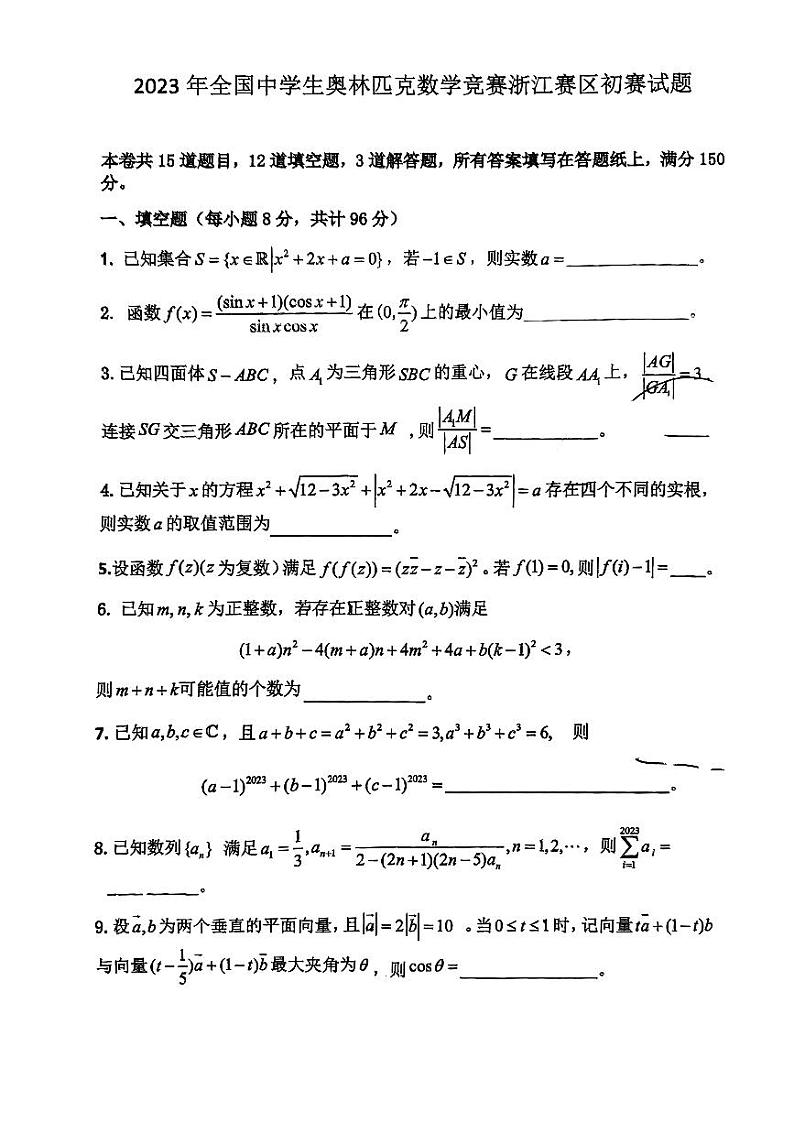 2023 年全国中学生奥林匹克数学竞赛浙江赛区初赛试题
本卷共 15 道题目，12 道填空题，3 道解答题，所有答案填写在答题纸上，满分 150
分。
一、填空题（每小题 8 分，共计 96 分）
1. 已知集合 S = {x∈ℝ|x² + 2x + a = 0}，若 −1∈S，则实数 a = ____________。
2. 函数 f(x) = (sin x + 1)(cos x + 1) / (sin x cos x) 在 (0, π/2) 上的最小值为 ____________。
3. 已知四面体 S − ABC，点 A₁ 为三角形 SBC 的重心，G 在线段 AA₁ 上，|AG|/|GA₁| = 3，
连接 SG 交三角形 ABC 所在的平面于 M ，则 |A₁M|/|AS| = ____________。
4. 已知关于 x 的方程 x² + √(12 − 3x²) + |x² + 2x − √(12 − 3x²)| = a 存在四个不同的实根，
则实数 a 的取值范围为 ____________。
5.设函数 f(z)(z 为复数) 满足 f(f(z)) = (zz̄ − z − z̄)²。若 f(1) = 0, 则 |f(i) − 1| = ____。
6. 已知 m, n, k 为正整数，若存在正整数对 (a,b) 满足
(1 + a)n² − 4(m + a)n + 4m² + 4a + b(k − 1)² < 3，
则 m + n + k 可能值的个数为 ____________。
7. 已知 a,b,c∈ℂ，且 a + b + c = a² + b² + c² = 3, a³ + b³ + c³ = 6, 则
(a − 1)²⁰²³ + (b − 1)²⁰²³ + (c − 1)²⁰²³ = ____________。
8. 已知数列 {aₙ} 满足 a₁ = 1/3, aₙ₊₁ = aₙ / (2 − (2n + 1)(2n − 5)aₙ), n = 1,2,⋯，则 ∑_{i=1}^{2023} aᵢ =
____________。
9. 设 a⃗,b 为两个垂直的平面向量，且 |a⃗| = 2|b⃗| = 10 。当 0 ≤ t ≤ 1 时，记向量 ta⃗ + (1 − t)b
与向量 (t − 1/5)a⃗ + (1 − t)b⃗ 最大夹角为 θ，则 cos θ = ____________。